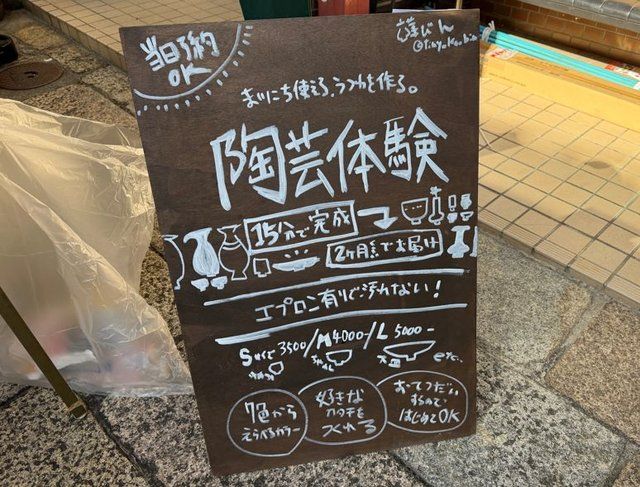 当日予約
OK
まいにち使える、うつわを作る。
陶芸体験
15分で完成
2ヶ月後でお届け
エプロン有りで汚れない!
Sサイズ 3500/M4000/L 5000-
etc..
7色から
えらべるカラー
好きな
カタチを
つくれる
おてつだい
するので
はじめてOK